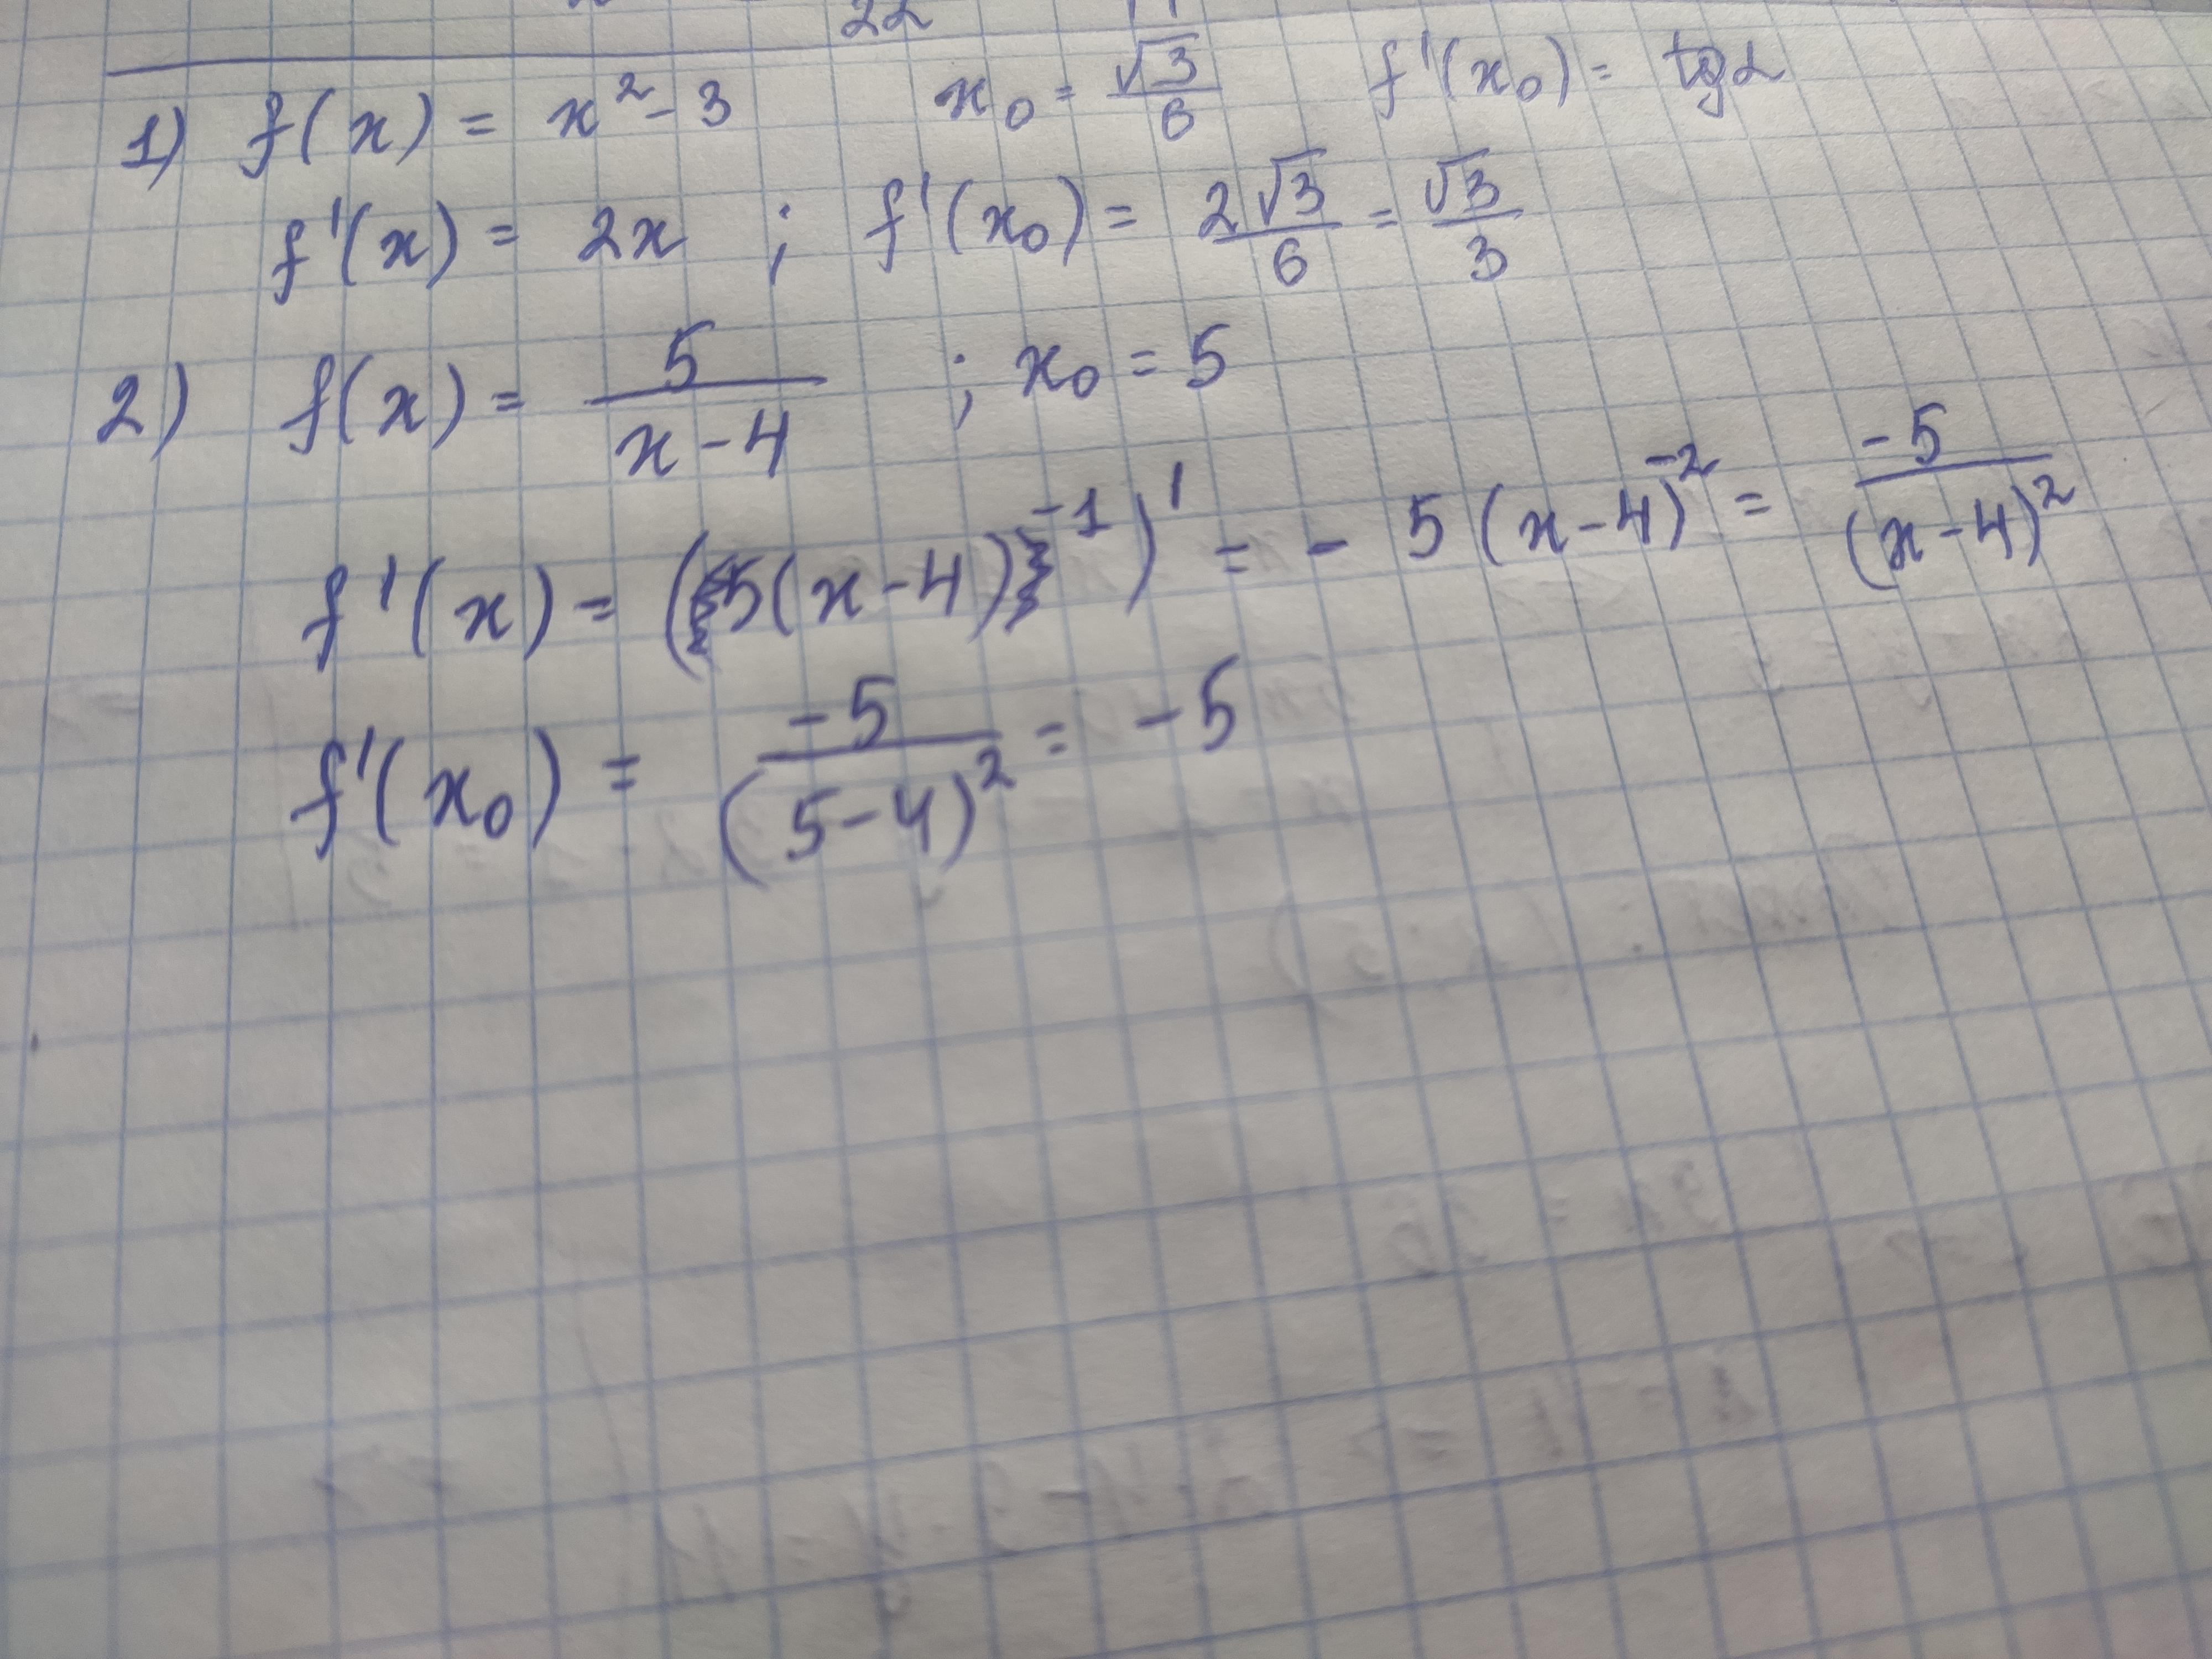 22
1) f(x) = x² - 3 x₀ = √3/6 f'(x₀) = tgα
f'(x) = 2x ; f'(x₀) = 2√3/6 = √3/3
2) f(x) = 5/(x-4) ; x₀ = 5
f'(x) = (5(x-4)⁻¹)' = - 5(x-4)⁻² = -5/(x-4)²
f'(x₀) = -5/(5-4)² = -5